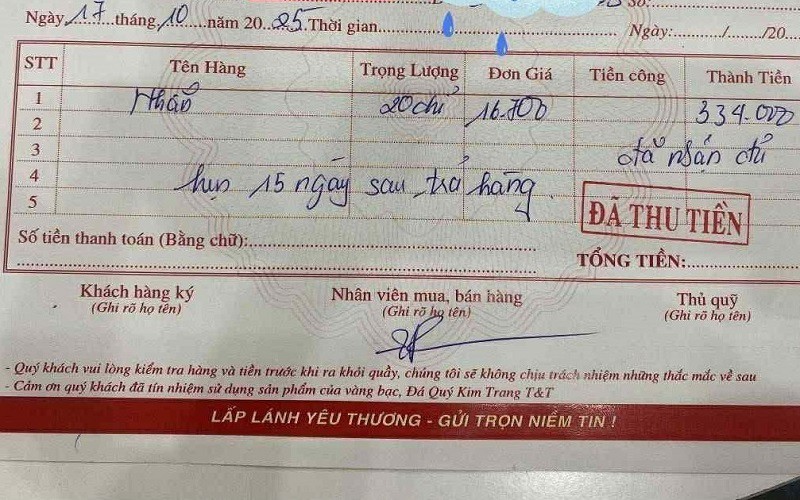 Ngày 17 tháng 10 năm 2025 Thời gian
Ngày:....../....../20....
STT Tên Hàng Trọng Lượng Đơn Giá Tiền công Thành Tiền
1 Nhẫn 20 chỉ 16.700 334.000
2
3 đã nhận đủ
4 hẹn 15 ngày sau trả hàng
5
ĐÃ THU TIỀN
Số tiền thanh toán (Bằng chữ):
TỔNG TIỀN:
Khách hàng ký Nhân viên mua, bán hàng Thủ quỹ
(Ghi rõ họ tên) (Ghi rõ họ tên) (Ghi rõ họ tên)
- Quý khách vui lòng kiểm tra hàng và tiền trước khi ra khỏi quầy, chúng tôi sẽ không chịu trách nhiệm những thắc mắc về sau
- Cảm ơn quý khách đã tín nhiệm sử dụng sản phẩm của vàng bạc, Đá Quý Kim Trang T&T
LẤP LÁNH YÊU THƯƠNG - GỬI TRỌN NIỀM TIN !